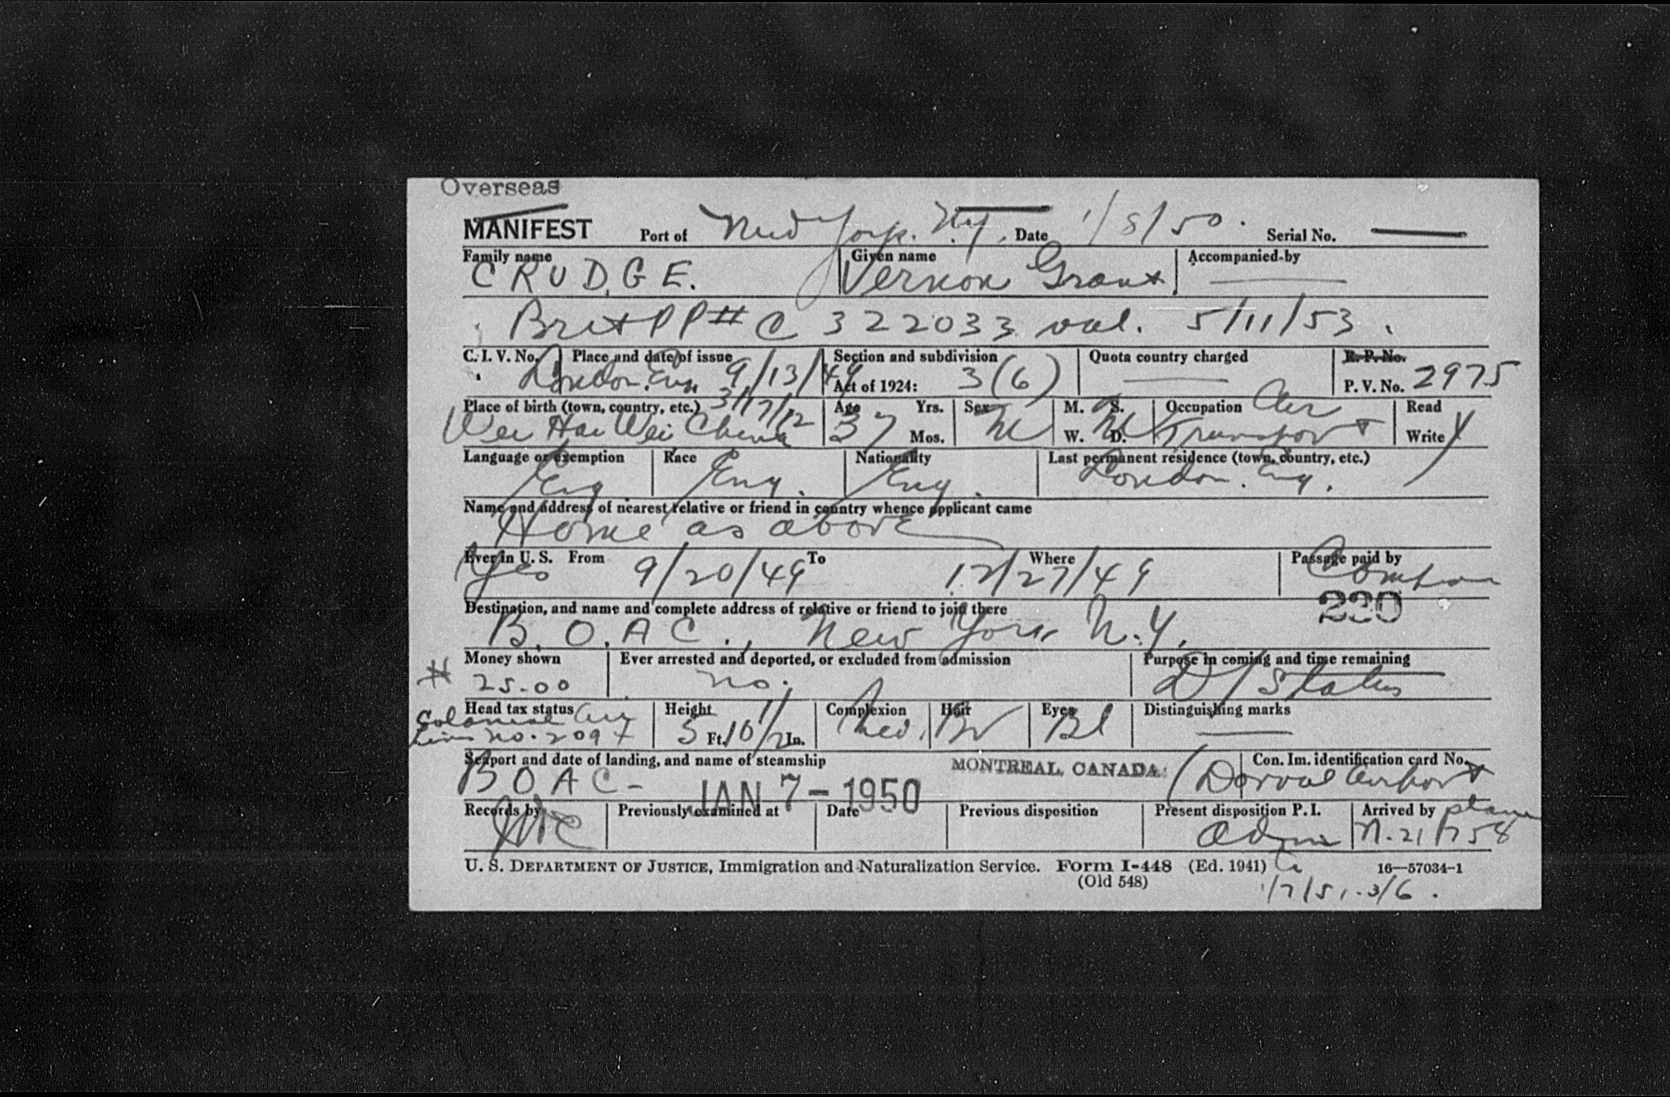 Overseas
MANIFEST Port of New York. N.Y. Date 1/8/50. Serial No.
Family name Given name Accompanied by
CRUDGE. Vernon Grant
Brit PP # C 322033 val. 5/11/53.
C. I. V. No. Place and date of issue Section and subdivision Quota country charged R. P. No.
London Eng 9/13/49 Act of 1924: 3(6) P. V. No. 2975
Place of birth (town, country, etc.) 3/17/12 Age Yrs. Sex M. S. Occupation Air Read
Wei Hai Wei China 37 Mos. M W. M D. Transport Write Y
Language or exemption Race Nationality Last permanent residence (town, country, etc.)
Eng Eng. Eng. London. Eng.
Name and address of nearest relative or friend in country whence applicant came
Home as above
Ever in U. S. From To Where Passage paid by
Yes 9/20/49 12/27/49 Company
230
Destination, and name and complete address of relative or friend to join there
B.O.A.C., New York N.Y.
Money shown Ever arrested and deported, or excluded from admission Purpose in coming and time remaining
# 25.00 no. D/Status
Head tax status Height Complexion Hair Eyes Distinguishing marks
Colonial Air 5 Ft. 10 1/2 In. Med. Br Bl
Lines no. 209
Seaport and date of landing, and name of steamship MONTREAL, CANADA. Con. Im. identification card No.
BOAC- JAN 7-1950 (Dorval Airport
Records by Previously examined at Date Previous disposition Present disposition P. I. Arrived by plane
Adm N-21758
U. S. DEPARTMENT OF JUSTICE, Immigration and Naturalization Service. Form I-448 (Ed. 1941) 16—57034-1
(Old 548) 1/7/51-3/6.